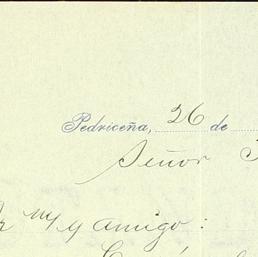 Pedriceña, 26 de
Señor
m y amigo: